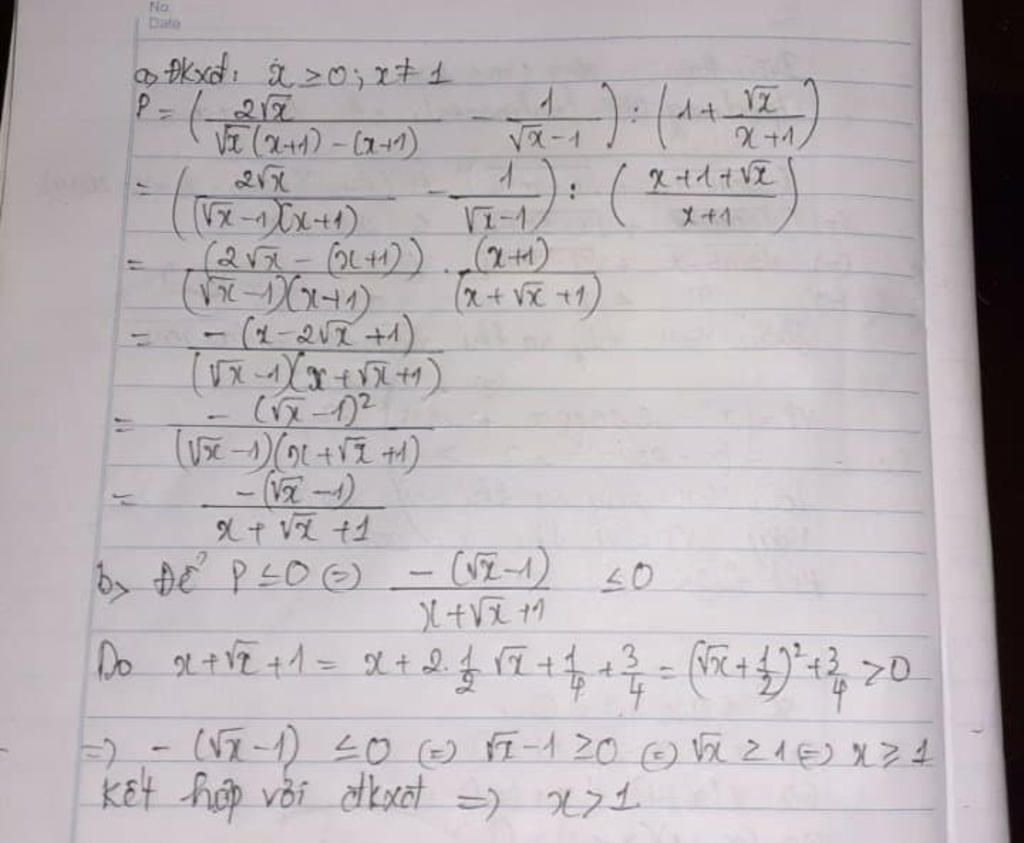 No.
Date
a, Đkxđ: x ≥ 0; x ≠ 1
P = (2√x / (√x(x+1) - (x+1)) - 1 / (√x-1)) : (1 + √x / (x+1))
= (2√x / ((√x-1)(x+1)) - 1 / (√x-1)) : ((x+1+√x) / (x+1))
= (2√x - (x+1)) / ((√x-1)(x+1)) . (x+1) / (x+√x+1)
= -(x-2√x+1) / ((√x-1)(x+√x+1))
= -(√x-1)² / ((√x-1)(x+√x+1))
= -(√x-1) / (x+√x+1)
b, Để P ≤ 0 (=) -(√x-1) / (x+√x+1) ≤ 0
Do x+√x+1 = x + 2.1/2 √x + 1/4 + 3/4 = (√x + 1/2)² + 3/4 > 0
=> -(√x-1) ≤ 0 (=) √x-1 ≥ 0 (=) √x ≥ 1 (=) x ≥ 1
Kết hợp với đkxđ => x > 1